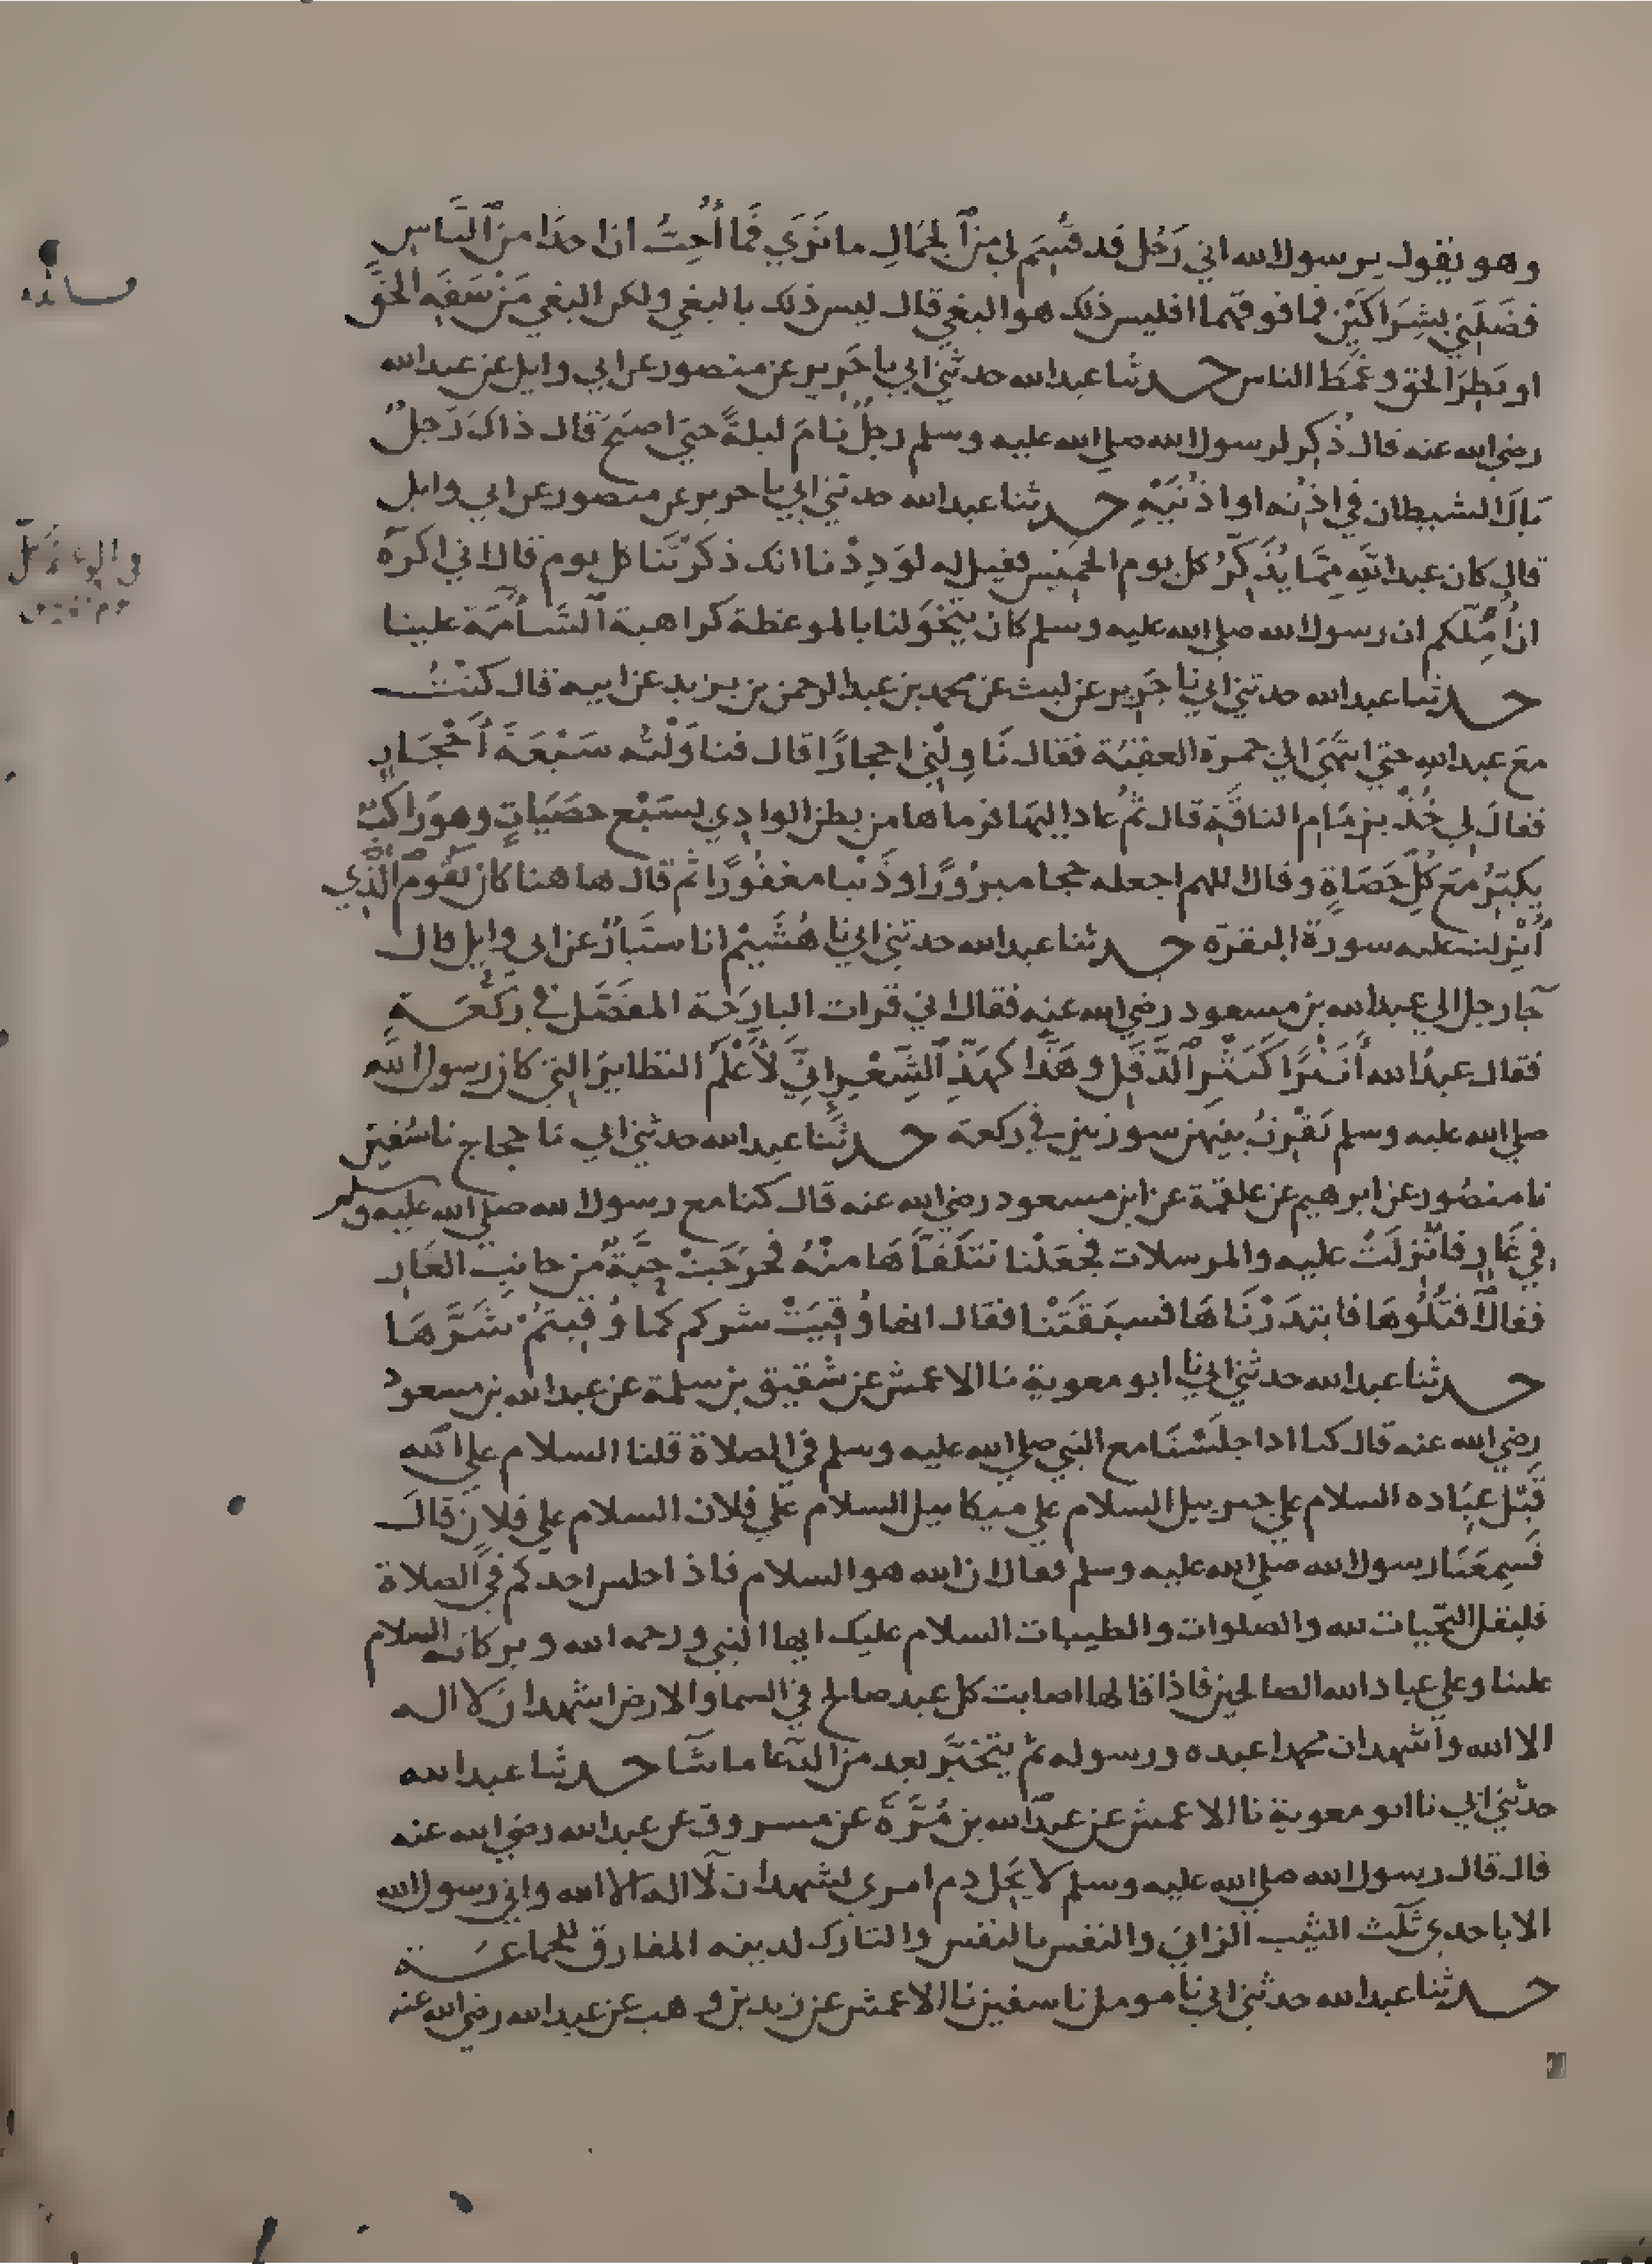 وهو يقول يرسول الله اني رَجُل قد قُسِمَ لي مِنَ الجَمَالِ ما تَرَي فَما أُحِبُّ ان احدًا مِنَ النَّاسِ
فَضَلَني بِشِرَاكَيْنِ فما فوقهما افليس ذلك هو البغي قال ليس ذلك بالبغي ولكن البغي مَنْ سَفِهَ الحَقَّ
او بَطِرَ الحق وغَمَطَ الناس حدثنا عبد الله حدثني ابي نا جَرِير عن منصور عن ابي وايل عن عبد الله
رضي الله عنه قال ذُكِر لرسول الله صلي الله عليه وسلم رجلٌ نامَ ليلةً حتي اصبَحَ قال ذاك رَجلٌ
بَالَ الشيطان في اذُنه او اذُنَيْهِ حدثنا عبد الله حدثني ابي نا جرير عن منصور عن ابي وايل
قال كان عبد الله مِمَّا يُذَكِّرُ كل يوم الخميس فقيل له لوَدِدْنا انك ذكرْتَنا كل يوم قال اني اكرَه
ان أُمِلَّكم ان رسول الله صلي الله عليه وسلم كان يَتَخَوَّلنا بالموعظة كراهية السَّأمَة علينا
حدثنا عبد الله حدثني ابي نا جَرِير عن ليث عن محمد بن عبد الرحمن بن يزيد عن ابيه قال كنْتُ
مَعَ عبد الله حتي انتَهَي الي جمرة العقبَة فقال نَاوِلْني احجارًا قال فناوَلْته سَبْعَةَ أَحْجَارٍ
فقالَ لي خُذْ بزمَام الناقَةِ قال ثُم عاد اليهَا فرماها من بطن الوادِي بسَبْع حصَيَاتٍ وهو رَاكبٌ
يكبِّرُ مَعَ كُلِّ حَصَاةٍ وقال اللهم اجعله حجا مبرُورًا وذَنْبا مغفُورًا ثم قال هاهنا كان يَقُوم الَّذي
أُنْزِلت عليه سورة البقرة حدثنا عبد الله حدثني ابي نا هُشَيْمٌ انا سَيَّارٌ عن ابي وايل قال
جَآ رجل الي عبد الله بن مسعود رضي الله عنه فقال اني قرات البارِحَة المفَصَّل في رَكْعَةٍ
فقال عبدُ الله أَنَثْرًا كَنَثْرِ الدَّقَلِ وهَذًّا كهَذِّ الشِّعْرِ اِنِّي لَأَعْلَمُ النظايرَ التي كان رسول الله
صلي الله عليه وسلم يَقْرِنُ بينهن سورتين في ركعة حدثنا عبد الله حدثني ابي نا حجاج نا سُفين
نا منصُور عن ابرهيم عن علقمة عن ابن مسعود رضي الله عنه قال كنا مع رسول الله صلي الله عليه وسلم
في غَارٍ فأُنْزِلَتْ عليه والمرسلات فجَعَلْنا نتلَقَّاهَا منْهُ فخرَجَتْ حَيَّةٌ مِن جانِبِ الغَارِ
فقال اقتُلُوهَا فابتدَرْنَاهَا فسبَقَتْنا فقال انها وُقِيَتْ شركم كما وُقِيتُم شَرَّهَا
حدثنا عبد الله حدثني ابي نا ابو معوية نا الاعمش عن شقيق بن سلمة عن عبد الله بن مسعود
رضي الله عنه قال كنا اذا جلَسْنَا مع النبي صلي الله عليه وسلم في الصلاة قلنا السلام علي الله
قَبْل عِبَاده السلام علي جبرييل السلام علي ميكاييل السلام علي فلان السلام علي فلان قالَ
فَسمِعَنَا رسول الله صلي الله عليه وسلم فقال ان الله هو السلام فاذا جلس احدكم في الصلاة
فليقل التحيات لله والصلوات والطيبات السلام عليك ايها النبي ورحمه الله وبركاته السلام
علينا وعلي عباد الله الصالحين فاذا قالها اصابت كل عبد صالح في السما والارض اشهد ان لا اله
الا الله وأشهد ان محمدا عبده ورسوله ثم يتَخيَّر بعد من الدُّعا ما شَآ حدثنا عبد الله
حدثني ابي نا ابو معوية نا الاعمش عن عبد الله بن مُرَّةَ عن مسروق عن عبد الله رضي الله عنه
قال قال رسول الله صلي الله عليه وسلم لا يَحِل دم امري يشهد أن لا اله الا الله واني رسول الله
الا باحدي ثَلَث الثيب الزاني والنفس بالنفس والتارك لدينه المفارق للجماعَة
حدثنا عبد الله حدثني ابي نا مومل نا سفين نا الاعمش عن زيد بن وهب عن عبد الله رضي الله عنه